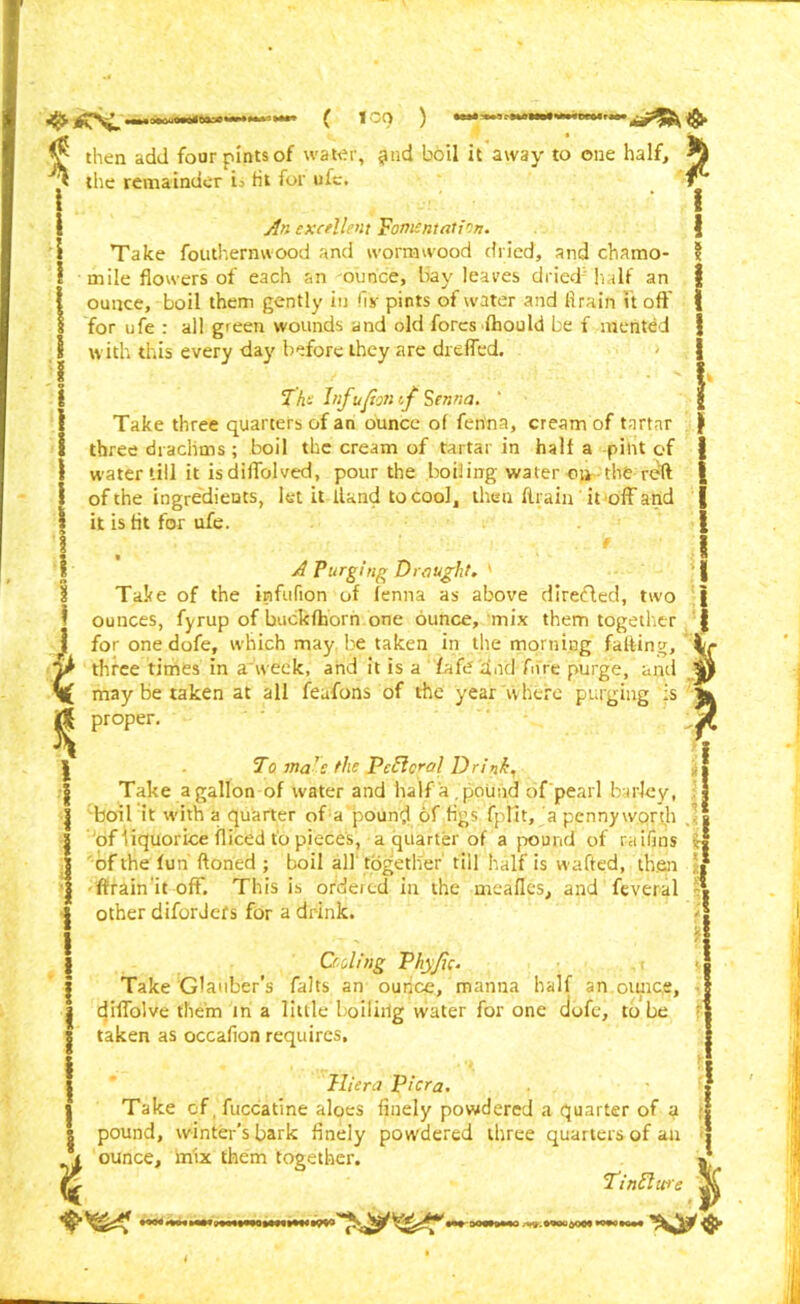 ( 109 )
then add four pints of water, and boil it away to one half,
the remainder is fit for uſe.
An excellent Fomentation.
Take ſouthernwood and wormwood dried, and chamo-
mile flowers of each an ounce, bay leaves dried half an
ounce, boil them gently in ſix pints of water and ſtrain it off
for uſe : all green wounds and old ſores ſhould be f mented
with this every day before they are dreſſed.
The Infuſion of Senna.
Take three quarters of an ounce of ſenna, cream of tartar
three drachms ; boil the cream of tartar in half a pint of
water till it is diſſolved, pour the boiling water on the reſt
of the ingredients, let it ſtand to cool, then ſtrain it off and
it is fit for uſe.
A Purging Draught.
Take of the infuſion of ſenna as above directed, two
ounces, ſyrup of buckſhorn one ounce, mix them together
for one doſe, which may be taken in the morning faſting,
three times in a week, and it is a ſafe and ſure purge, and
may be taken at all ſeaſons of the year where purging is
proper.
To make the Pectoral Drink.
Take a gallon of water and half a pound of pearl barley,
boil it with a quarter of a pound of figs ſplit, a pennyworth
of liquorice ſliced to pieces, a quarter of a pound of raiſins
of the ſun ſtoned ; boil all together till half is waſted, then
ſtrain it off. This is ordered in the meaſles, and ſeveral
other diſorders for a drink.
Cooling Phyſic.
Take Glauber's ſalts an ounce, manna half an ounce,
diſſolve them in a little boiling water for one doſe, to be
taken as occaſion requires.
Hiera Picra.
Take of ſuccatine aloes finely powdered a quarter of a
pound, winter's bark finely powdered three quarters of an
ounce, mix them together.
Tincture